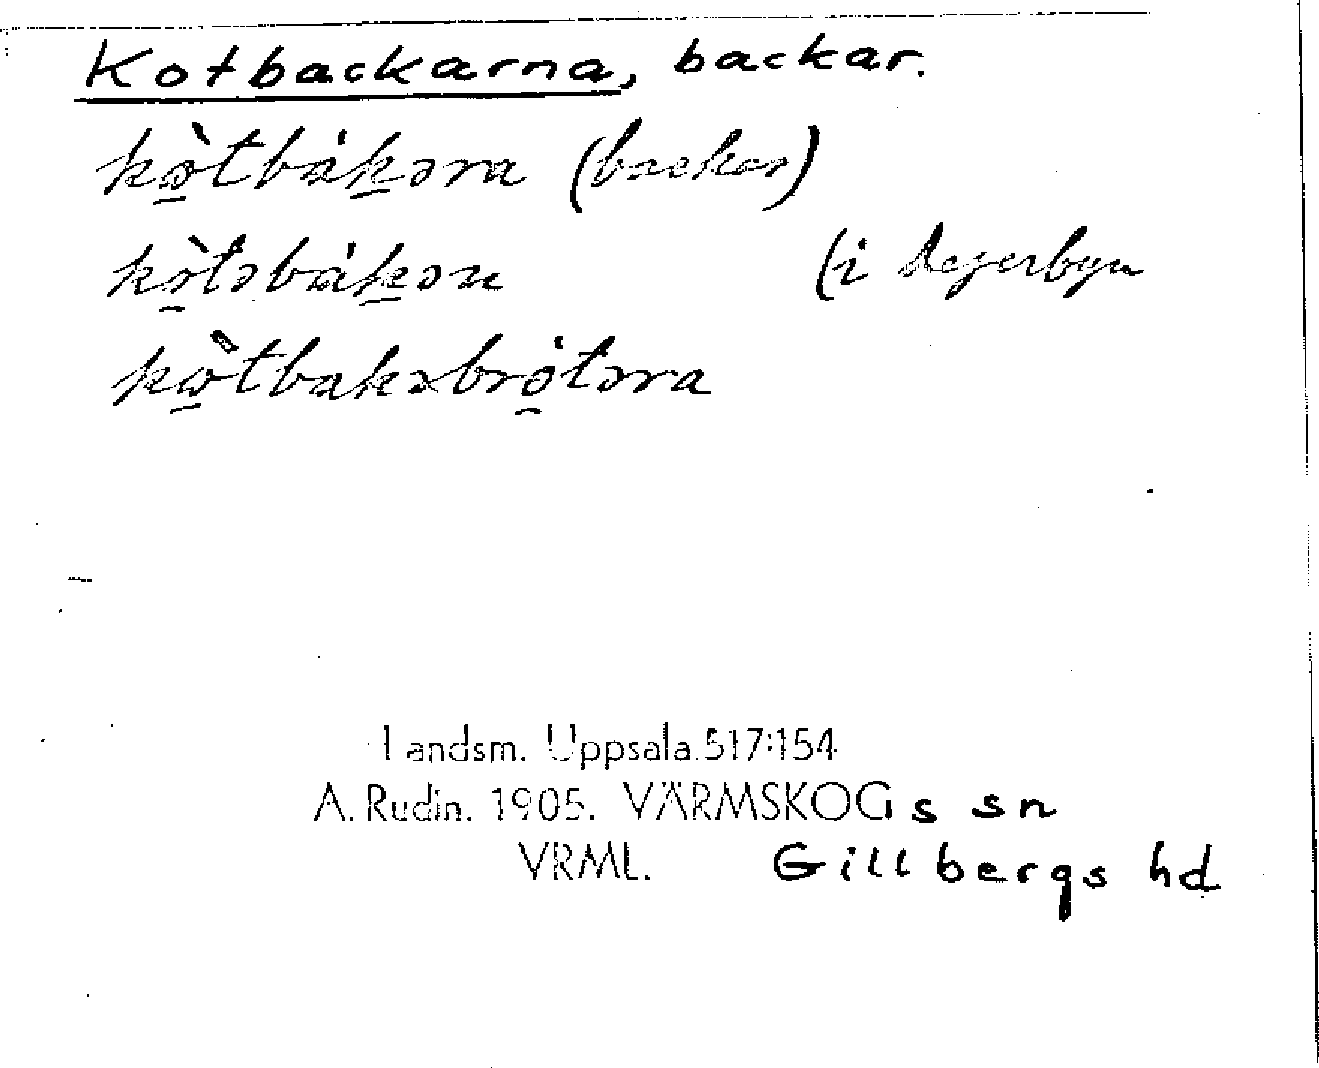 Kotbackarna, backar.
kòtbákəra (backar)
kòtəbákən (i Degerbyn
kòtbakəbrótəra
Landsm. Uppsala.517:154
A. Rudin. 1905. VÄRMSKOGs sn
VRML. Gillbergs hd